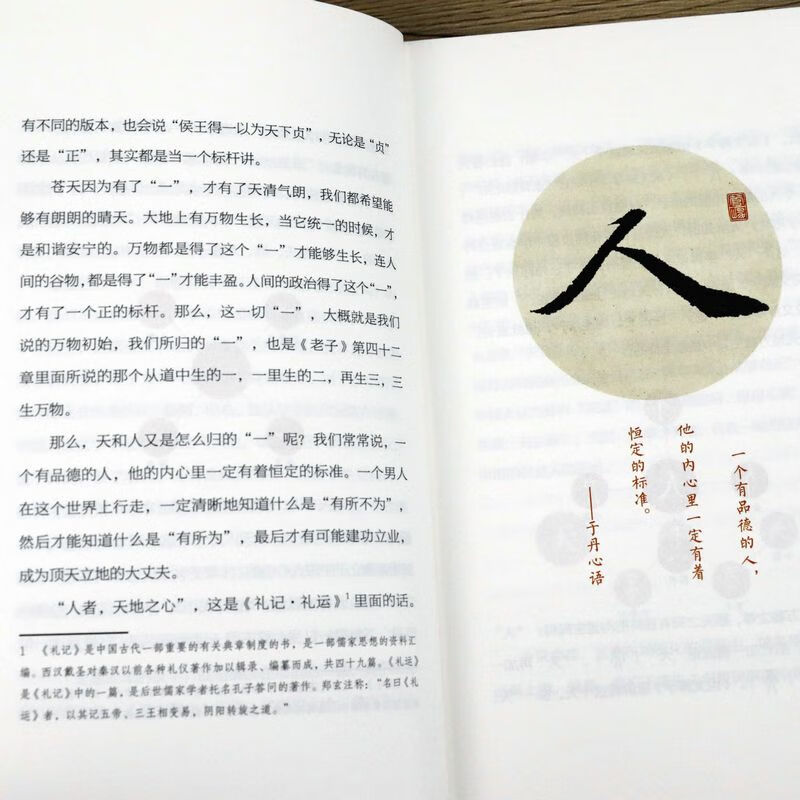 有不同的版本，也会说“侯王得一以为天下贞”，无论是“贞”
还是“正”，其实都是当一个标杆讲。
苍天因为有了“一”，才有了天清气朗，我们都希望能
够有朗朗的晴天。大地上有万物生长，当它统一的时候，才
是和谐安宁的。万物都是得了这个“一”才能够生长，连人
间的谷物，都是得了“一”才能丰盈。人间的政治得了这个“一”，
才有了一个正的标杆。那么，这一切“一”，大概就是我们
说的万物初始，我们所归的“一”，也是《老子》第四十二
章里面所说的那个从道中生的一，一里生的二，再生三，三
生万物。
那么，天和人又是怎么归的“一”呢？我们常常说，一
个有品德的人，他的内心里一定有着恒定的标准。一个男人
在这个世界上行走，一定清晰地知道什么是“有所不为”，
然后才能知道什么是“有所为”，最后才有可能建功立业，
成为顶天立地的大丈夫。
“人者，天地之心”，这是《礼记·礼运》1里面的话。
1 《礼记》是中国古代一部重要的有关典章制度的书，是一部儒家思想的资料汇
编。西汉戴圣对秦汉以前各种礼仪著作加以辑录、编纂而成，共四十九篇。《礼运》
是《礼记》中的一篇，是后世儒家学者托名孔子答问的著作。郑玄注称：“名曰《礼
运》者，以其记五帝、三王相变易，阴阳转旋之道。”
人
一个有品德的人，
他的内心里一定有着
恒定的标准。
——于丹心语